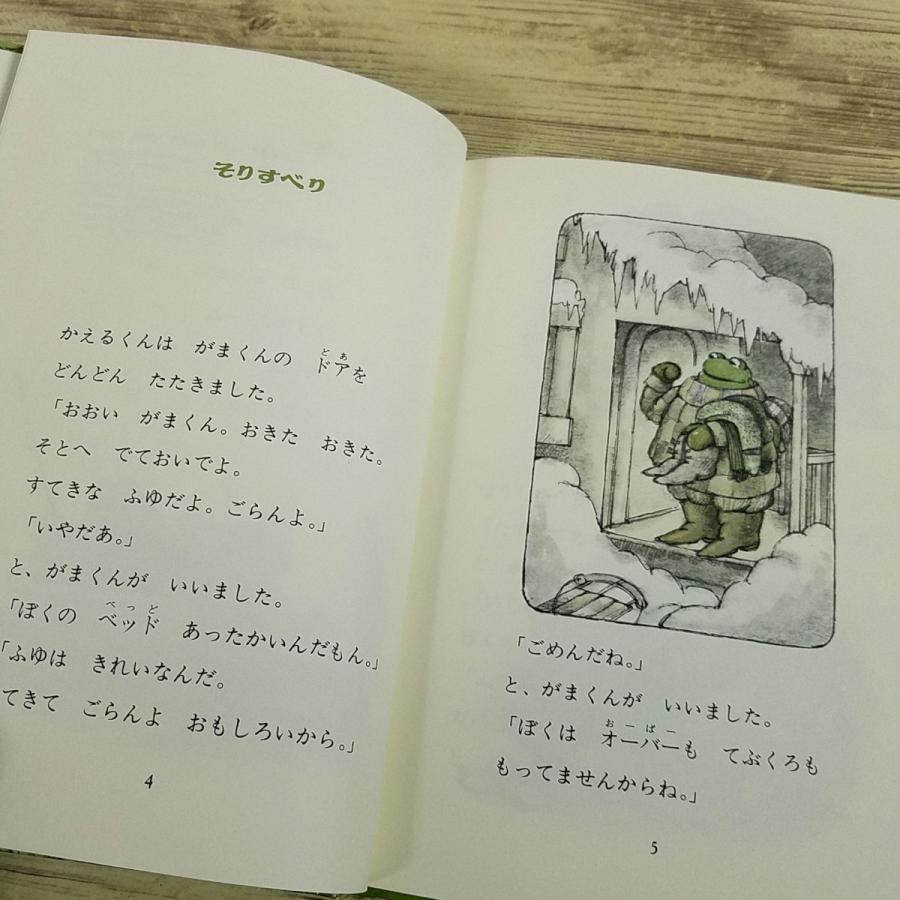 そりすべり
かえるくんは　がまくんの　ドアを
どんどん　たたきました。
「おおい　がまくん。おきた　おきた。
そとへ　でておいでよ。
すてきな　ふゆだよ。ごらんよ。」
「いやだあ。」
と、がまくんが　いいました。
「ぼくの　ベッド　あったかいんだもん。」
「ふゆは　きれいなんだ。
てきて　ごらんよ　おもしろいから。」
4
「ごめんだね。」
と、がまくんが　いいました。
「ぼくは　オーバーも　てぶくろも
もってませんからね。」
5